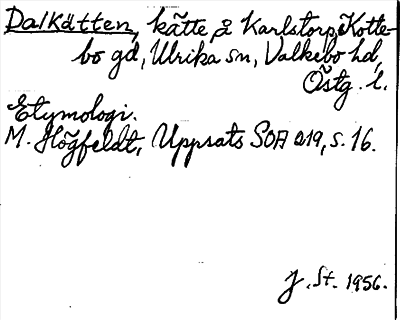 Dalkätten, kätte på Karlstorp, Kotte-
bo gd, Ulrika sn, Valkebo hd,
Östg. l.
Etymologi.
M. Högfeldt, Uppsats SOA 219, s. 16.
J. St. 1956.